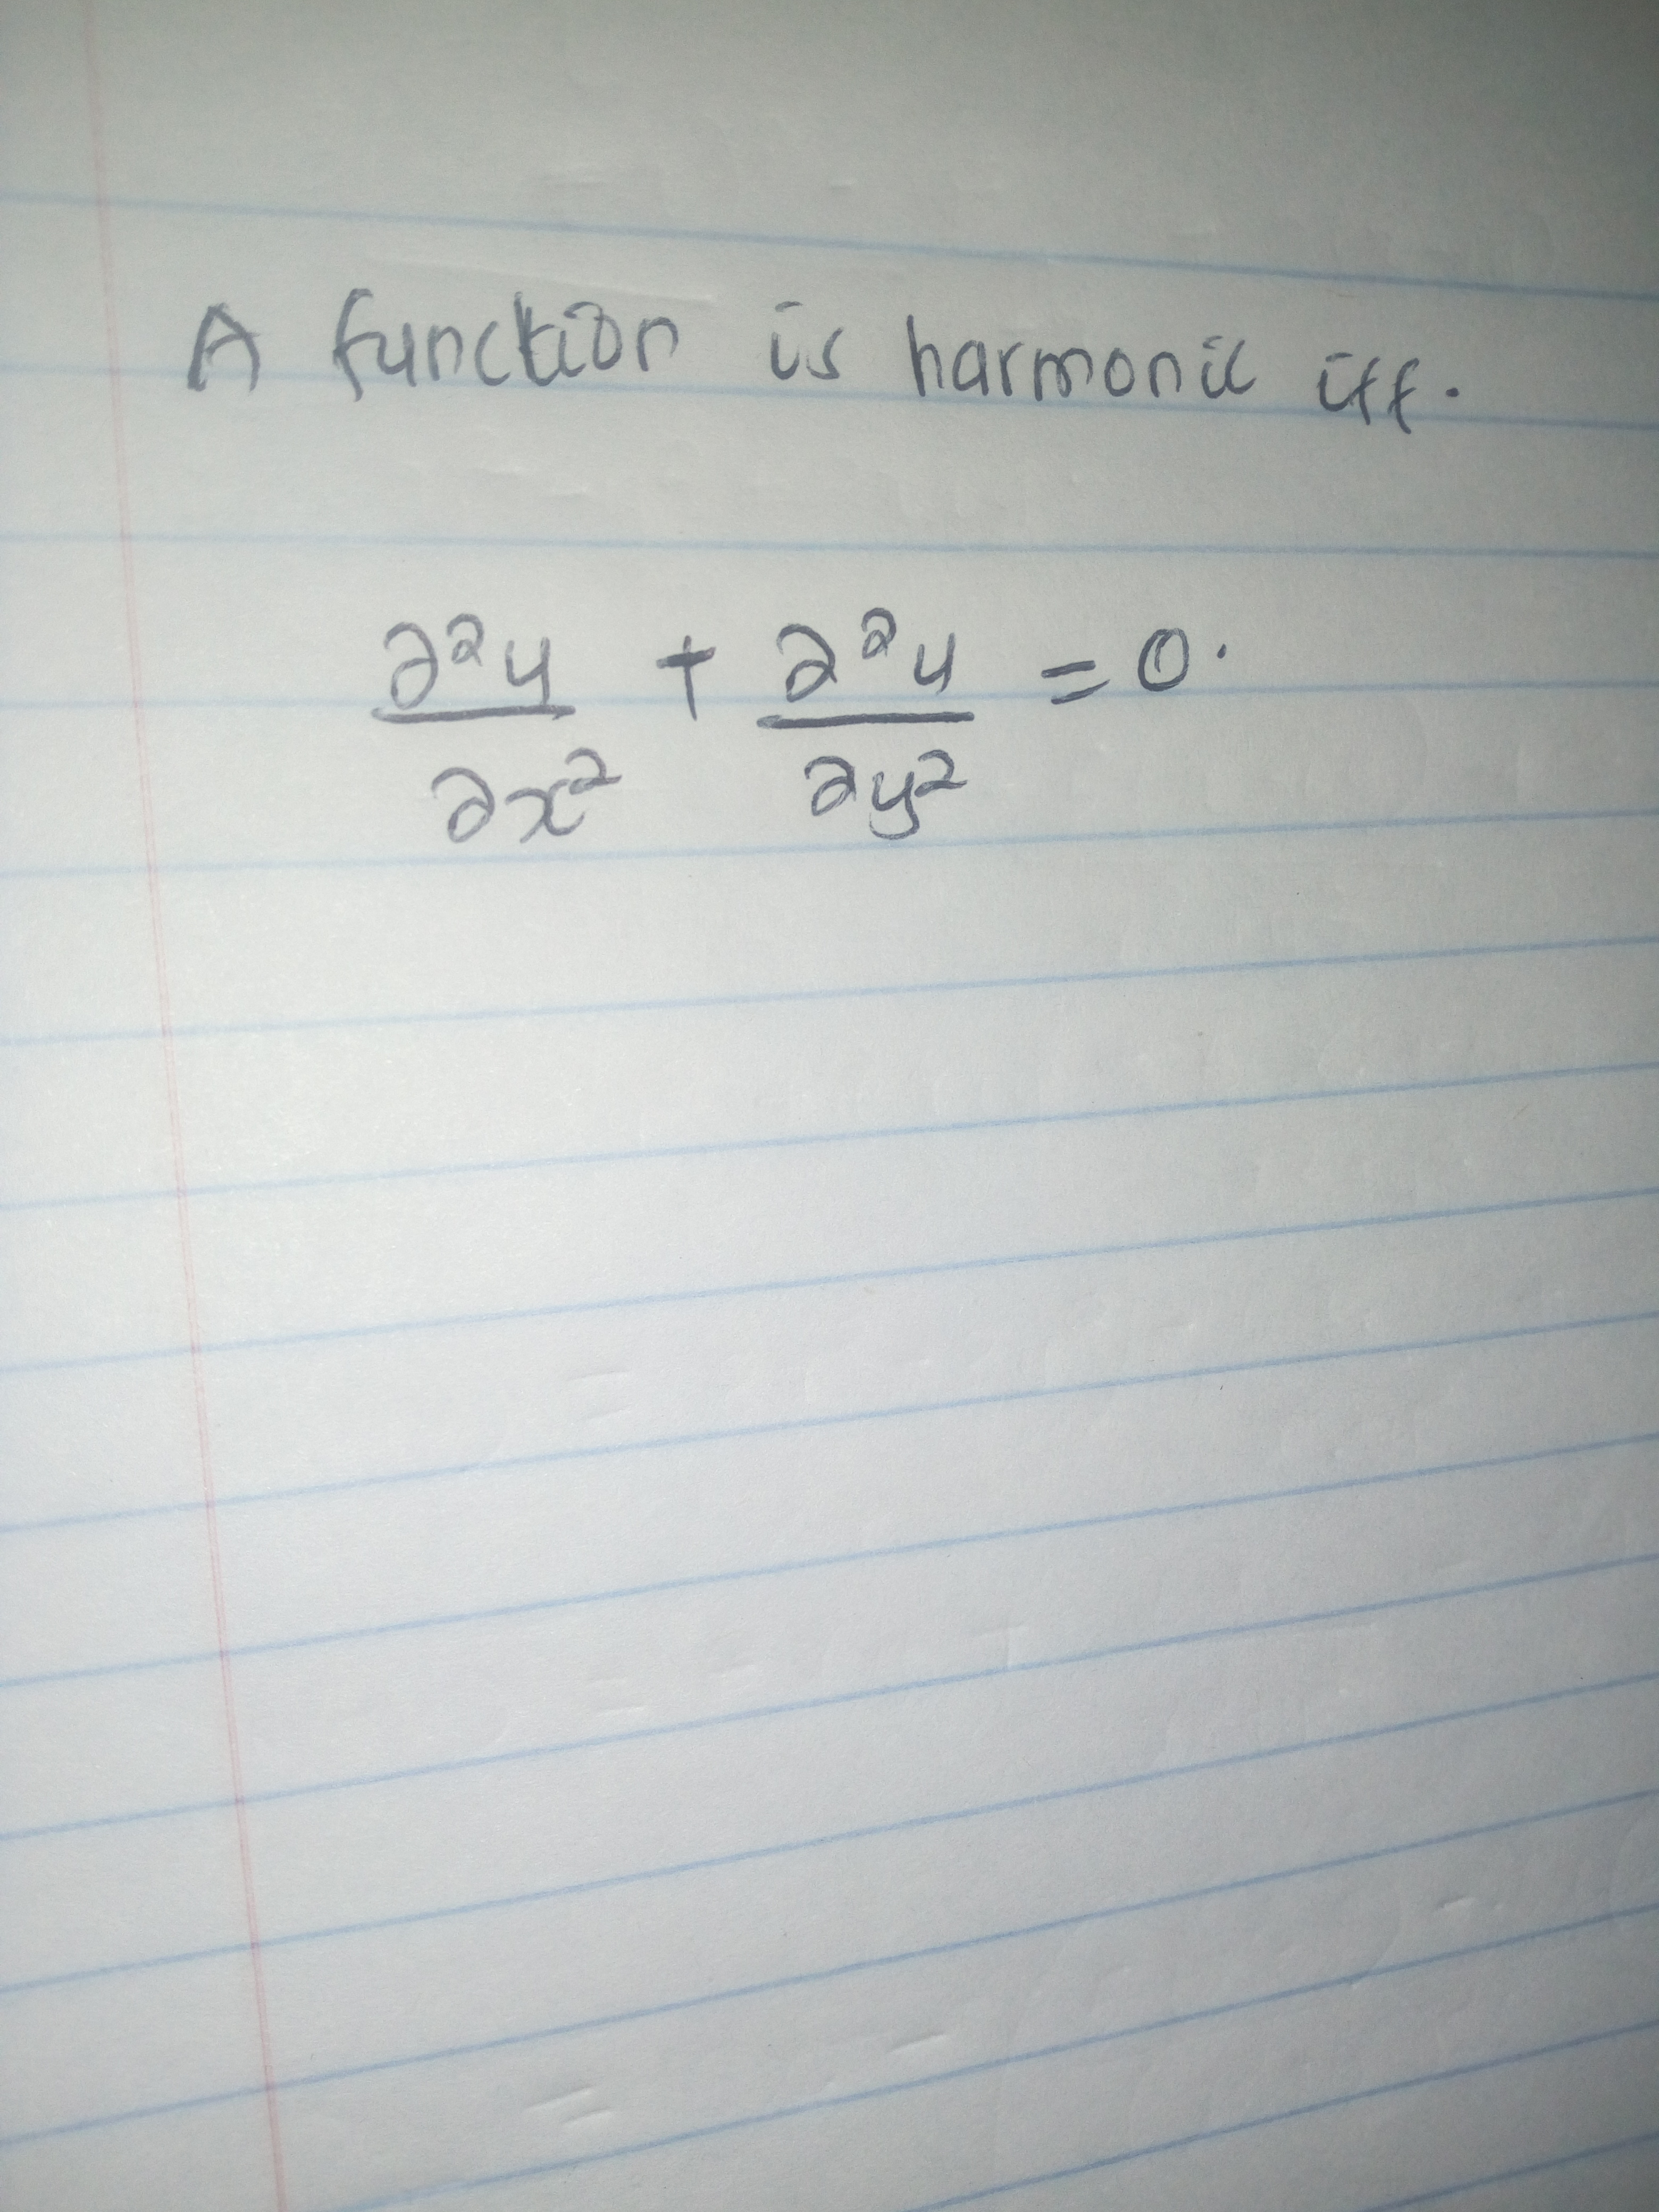 A function is harmonic iff.
∂²u/∂x² + ∂²u/∂y² = 0.